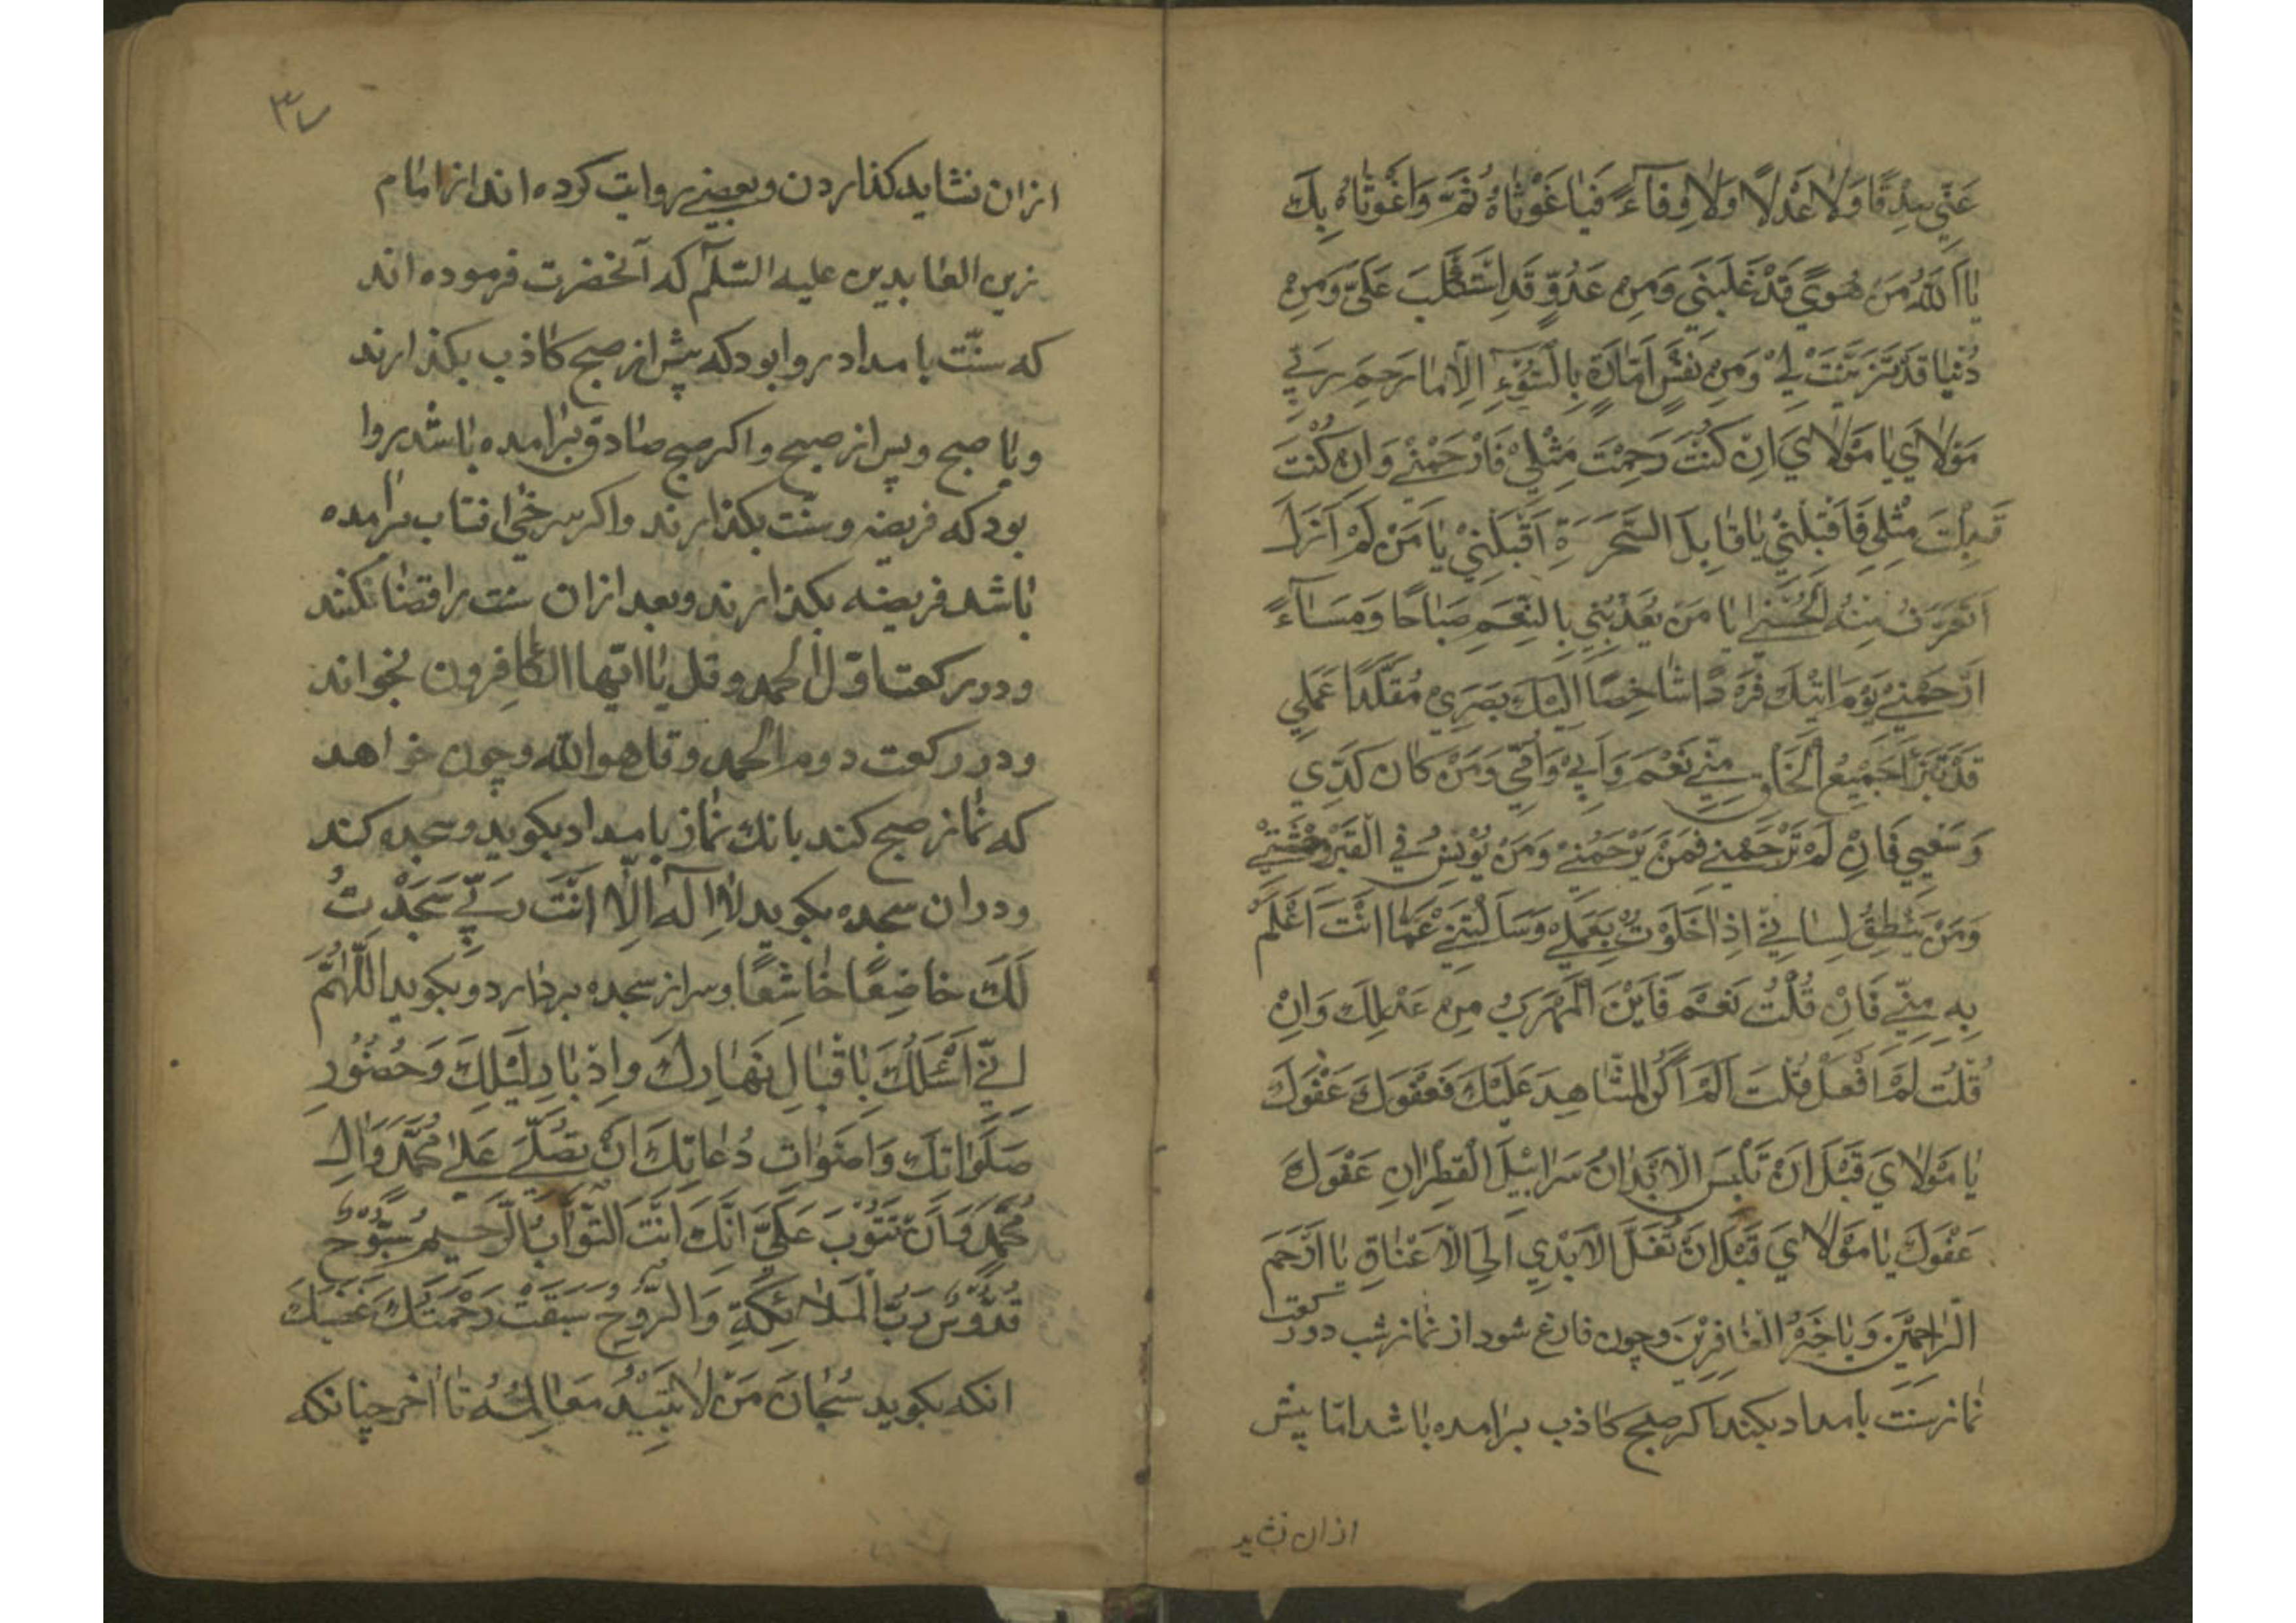 عَنِّي صِدْقًا وَلَا عَدْلًا وَلَا وِفَآءً فَيَا غَوْثَاهُ ثُمَّ وَاغَوْثَاهُ بِكَ
يَا اَللّٰهُ مِنْ هُوَيً قَدْ غَلَبَنِي وَمِنْ عَدُوٍّ قَدِ اسْتَكْلَبَ عَلَيَّ وَمِنْ
دُنْيَا قَدْ تَزَيَّنَتْ لِي وَمِنْ نَفْسٍ اَمَّارَةٍ بِالسُّوٓءِ اِلَّا مَا رَحِمَ رَبِّي
مَوْلَايَ يَا مَوْلَايَ اِنْ كُنْتَ رَحِمْتَ مِثْلِي فَارْحَمْنِي وَاِنْ كُنْتَ
قَبِلْتَ مِثْلِي فَاقْبَلْنِي يَا قَابِلَ السَّحَرَةِ اَقْبَلْنِي يَا مَنْ لَمْ اَزَلْ
اَتَعَرَّفُ مِنْهُ الْحُسْنٰي يَا مَنْ يُغَذِّينِي بِالنِّعَمِ صَبَاحًا وَمَسَآءً
اِرْحَمْنِي يَوْمَ اٰتِيْكَ فَرْدًا شَاخِصًا اِلَيْكَ بَصَرِي مُقَلَّدًا عَمَلِي
قَدْ تَبَرَّأَ جَمِيْعُ الْخَلْقِ مِنِّي نَعَمْ وَاَبِي وَاُمِّي وَمَنْ كَانَ كَدِّي
وَسَعْيِي فَاِنْ لَمْ تَرْحَمْنِي فَمَنْ يَرْحَمُنِي وَمَنْ يُوْنِسُ فِي الْقَبْرِ وَحْشَتِي
وَمَنْ يَنْطِقُ لِسَانِي اِذَا خَلَوْتُ بِعَمَلِي وَسَآلْتَنِي عَمَّا اَنْتَ اَعْلَمُ
بِهِ مِنِّي فَاِنْ قُلْتُ نَعَمْ فَاَيْنَ الْمَهْرَبُ مِنْ عَدْلِكَ وَاِنْ
قُلْتُ لَمْ اَفْعَلْ قُلْتَ اَلَمْ اَكُنِ الشَّاهِدَ عَلَيْكَ فَعَفْوَكَ عَفْوَكَ
يَا مَوْلَايَ قَبْلَ اَنْ تَلْبَسَ الْاَبْدَانُ سَرَابِيْلَ الْقَطِرَانِ عَفْوَكَ
عَفْوَكَ يَا مَوْلَايَ قَبْلَ اَنْ تُغَلَّ الْاَيْدِي اِلَي الْاَعْنَاقِ يَا اَرْحَمَ
الرَّاحِمِيْنَ وَيَا خَيْرَ الْغَافِرِيْنَ وچون فارغ شود از نماز شب دو ركعت
نماز سنّت بامداد بكند اكر صبح كاذب برامده باشد امّا پيش
ازان نشايد
٣٧
ازان نشايد كذاردن وبعضي روايت كرده اند از امام
زين العابدين عليه السّلم كه آنحضرت فرموده اند
كه سنّت بامداد روا بود كه پيش از صبح كاذب بكذارند
وبا صبح وپس از صبح واكر صبح صادق برامده باشد روا
بود كه فريضه وسنّت بكذارند واكر سرخي افتاب برامده
باشد فريضه بكذارند وبعد ازان سنت را قضا كنند
ودر ركعت اوّل الحمد وقل يا ايّها الكافرون بخواند
ودر ركعت دوم الحمد وقل هو الله وچون خواهد
كه نماز صبح كند بانك نماز بامداد بكويد وسجده كند
ودران سجده بكويد لَا اِلٰهَ اِلَّا اَنْتَ رَبِّي سَجَدْتُ
لَكَ خَاضِعًا خَاشِعًا وسر از سجده بردارد وبكويد اَللّٰهُمَّ
اِنِّي اَسْئَلُكَ بِاِقْبَالِ نَهَارِكَ وَاِدْبَارِ لَيْلِكَ وَحُضُوْرِ
صَلَوَاتِكَ وَاَصْوَاتِ دُعَاتِكَ اَنْ تُصَلِّيَ عَلٰي مُحَمَّدٍ وَاٰلِ
مُحَمَّدٍ وَاَنْ تَتُوْبَ عَلَيَّ اِنَّكَ اَنْتَ التَّوَّابُ الرَّحِيْمُ سُبُّوْحٌ
قُدُّوْسٌ رَبُّ الْمَلَائِكَةِ وَالرُّوْحِ سَبَقَتْ رَحْمَتُكَ غَضَبَكَ
انكه بكويد سُبْحَانَ مَنْ لَا تَبِيْدُ مَعَالِمُهُ تا اخر چنانكه